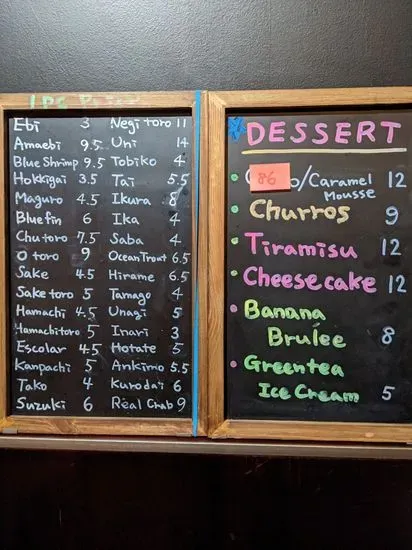 1 PC
Ebi 3 Negitoro 11
Amaebi 9.5 Uni 14
Blue Shrimp 9.5 Tobiko 4
Hokkigai 3.5 Tai 5.5
Maguro 4.5 Ikura 8
Bluefin 6 Ika 4
Chutoro 7.5 Saba 4
Otoro 9 Ocean Trout 6.5
Sake 4.5 Hirame 6.5
Saketoro 5 Tamago 4
Hamachi 4.5 Unagi 5
Hamachitoro 5 Inari 3
Escolar 4.5 Hotate 5
Kanpachi 5 Ankimo 5.5
Tako 4 Kurodai 6
Suzuki 6 Real Crab 9
DESSERT
86 /Caramel 12
Mousse
Churros 9
Tiramisu 12
Cheesecake 12
Banana
Brulee 8
Greentea
Ice Cream 5